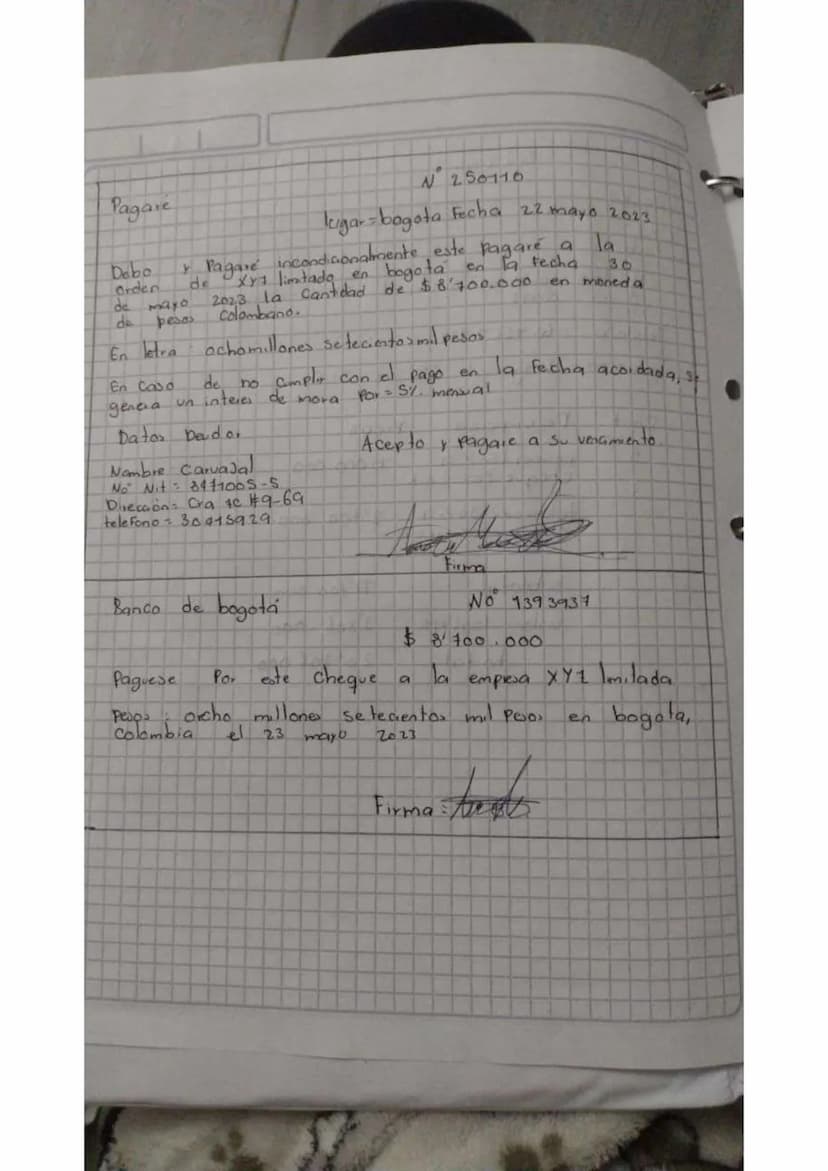 N° 250110
Pagaré
lugar=bogota Fecha 22 mayo 2023
Debo y Pagaré incondicionalmente este pagaré a la
orden de XY1 limitado en bogotá en la fecha 30
de mayo 2023 la Cantidad de $8'700.000 en moneda
de pesos Colombano.
En letra ochomillones setecientos mil pesos
En Caso de no cumplir con el pago en la Fecha acordada, se
genera un interes de mora Por = 5% mensual
Datos Deudor
Acepto y pagare a su vencimiento
Nombre Carvajal
No Nit = 8971005-5
Dirección = Cra 7C #9-69
teleFono =
Firma
Banco de bogotá
No° 9393937
$ 8'700.000
Paguese Por este Cheque a la empresa XY1 lmilada
Pesos: ocho millones setecientos mil Pesos en bogota,
Colombia el 23 mayo 2023
Firma: